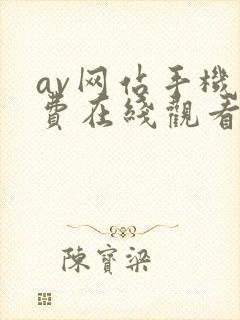 av网佔手機
費在綫觀看
陳寶梁